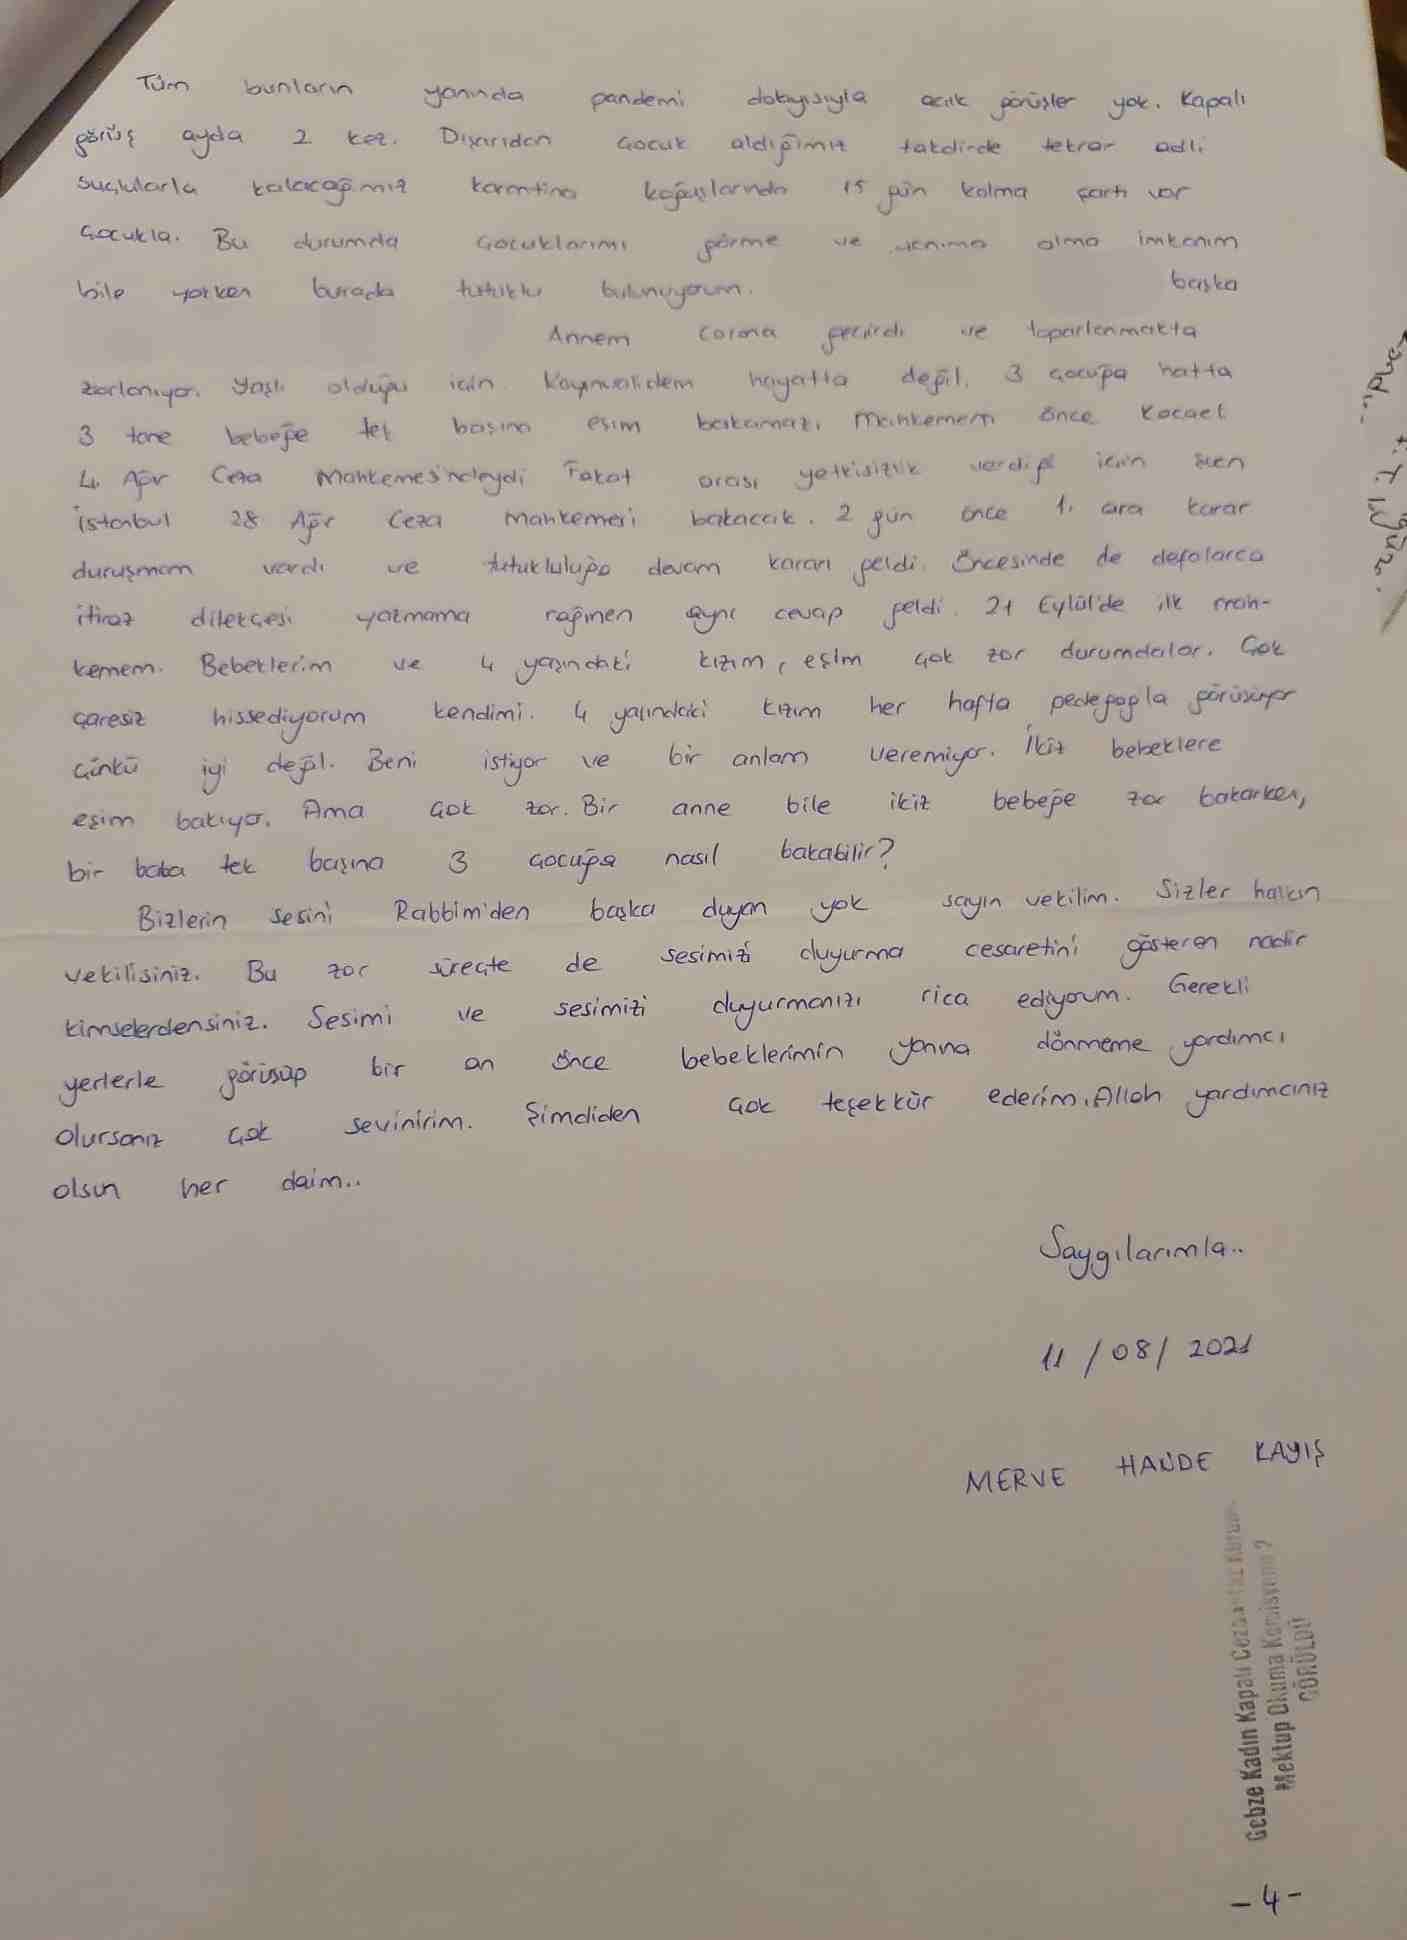 Tüm bunların yanında pandemi dolayısıyla açık görüşler yok. Kapalı
görüş ayda 2 kez. Dışarıdan çocuk aldığımız takdirde tekrar adli
suçlularla kalacağımız karantina koğuşlarında 15 gün kalma şartı var
çocukla. Bu durumda çocuklarımı görme ve yanıma alma imkanım
bile yokken burada tutuklu bulunuyorum. başka
Annem corona geçirdi ve toparlanmakta
zorlanıyor. Yaşlı olduğu için. Kayınvalidem hayatta değil. 3 çocuğa hatta
3 tane bebeğe tek başına eşim bakamaz. Mahkemem önce Kocaeli
4. Ağır Ceza Mahkemesindeydi Fakat orası yetkisizlik verdiği için
İstanbul 28 Ağır Ceza Mahkemesi bakacak. 2 gün önce 1. ara karar
duruşmam vardı ve tutukluluğa devam kararı geldi. Öncesinde de defalarca
itiraz dilekçesi yazmama rağmen aynı cevap geldi. 21 Eylül'de ilk mah-
kemem. Bebeklerim ve 4 yaşındaki kızım, eşim çok zor durumdalar. Çok
çaresiz hissediyorum kendimi. 4 yaşındaki kızım her hafta pedegogla görüşüyor
çünkü iyi değil. Beni istiyor ve bir anlam veremiyor. İkiz bebeklere
eşim bakıyor. Ama çok zor. Bir anne bile ikiz bebeğe zor bakarken,
bir baba tek başına 3 çocuğa nasıl bakabilir?
Bizlerin sesini Rabbim'den başka duyan yok sayın vekilim. Sizler halkın
vekilisiniz. Bu zor süreçte de sesimizi duyurma cesaretini gösteren nadir
kimselerdensiniz. Sesimi ve sesimizi duyurmanızı rica ediyorum. Gerekli
yerlerle görüşüp bir an önce bebeklerimin yanına dönmeme yardımcı
olursanız çok sevinirim. Şimdiden çok teşekkür ederim. Allah yardımcınız
olsun her daim..
Saygılarımla..
11/08/2021
MERVE HANDE KAYIŞ
Gebze Kadın Kapalı Ceza
Mektup Okuma Komisyonu
GÖRÜLDÜ
-4-